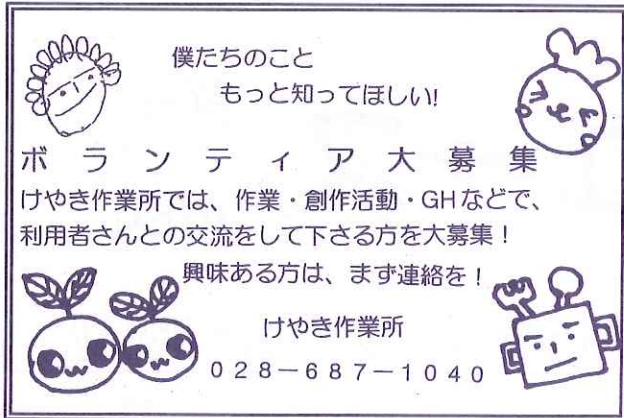 僕たちのこと
もっと知ってほしい!
ボランティア大募集
けやき作業所では、作業・創作活動・GHなどで、
利用者さんとの交流をして下さる方を大募集!
興味ある方は、まず連絡を!
けやき作業所
028－687－1040